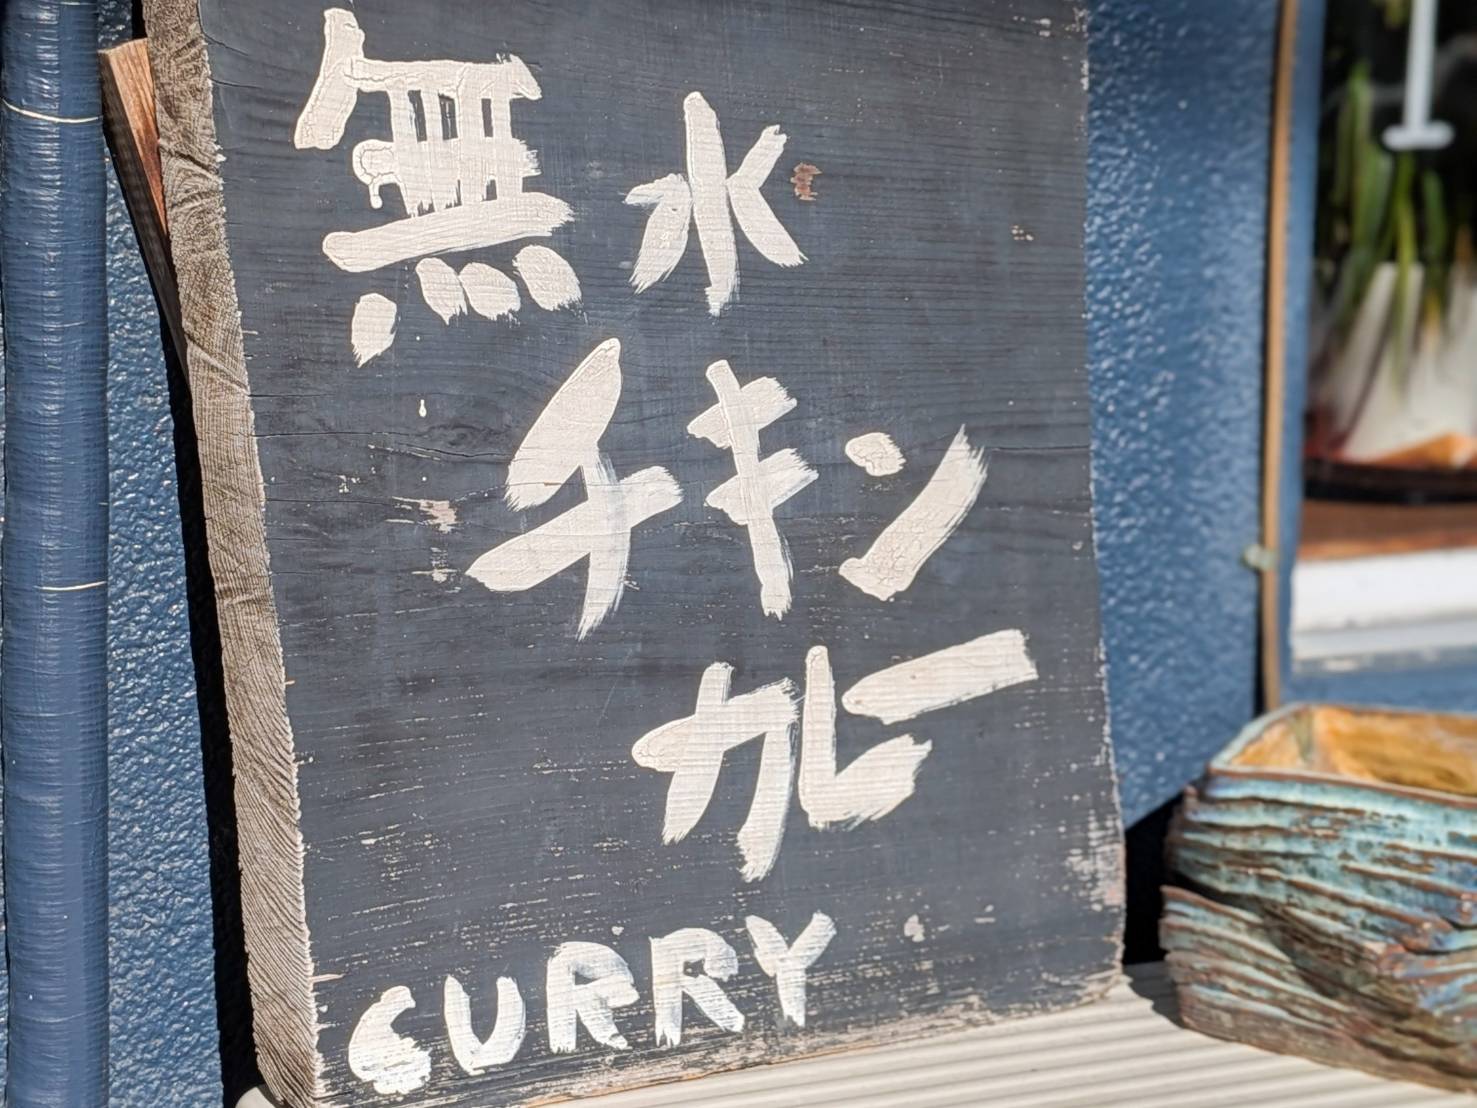 無水
チキン
カレー
CURRY